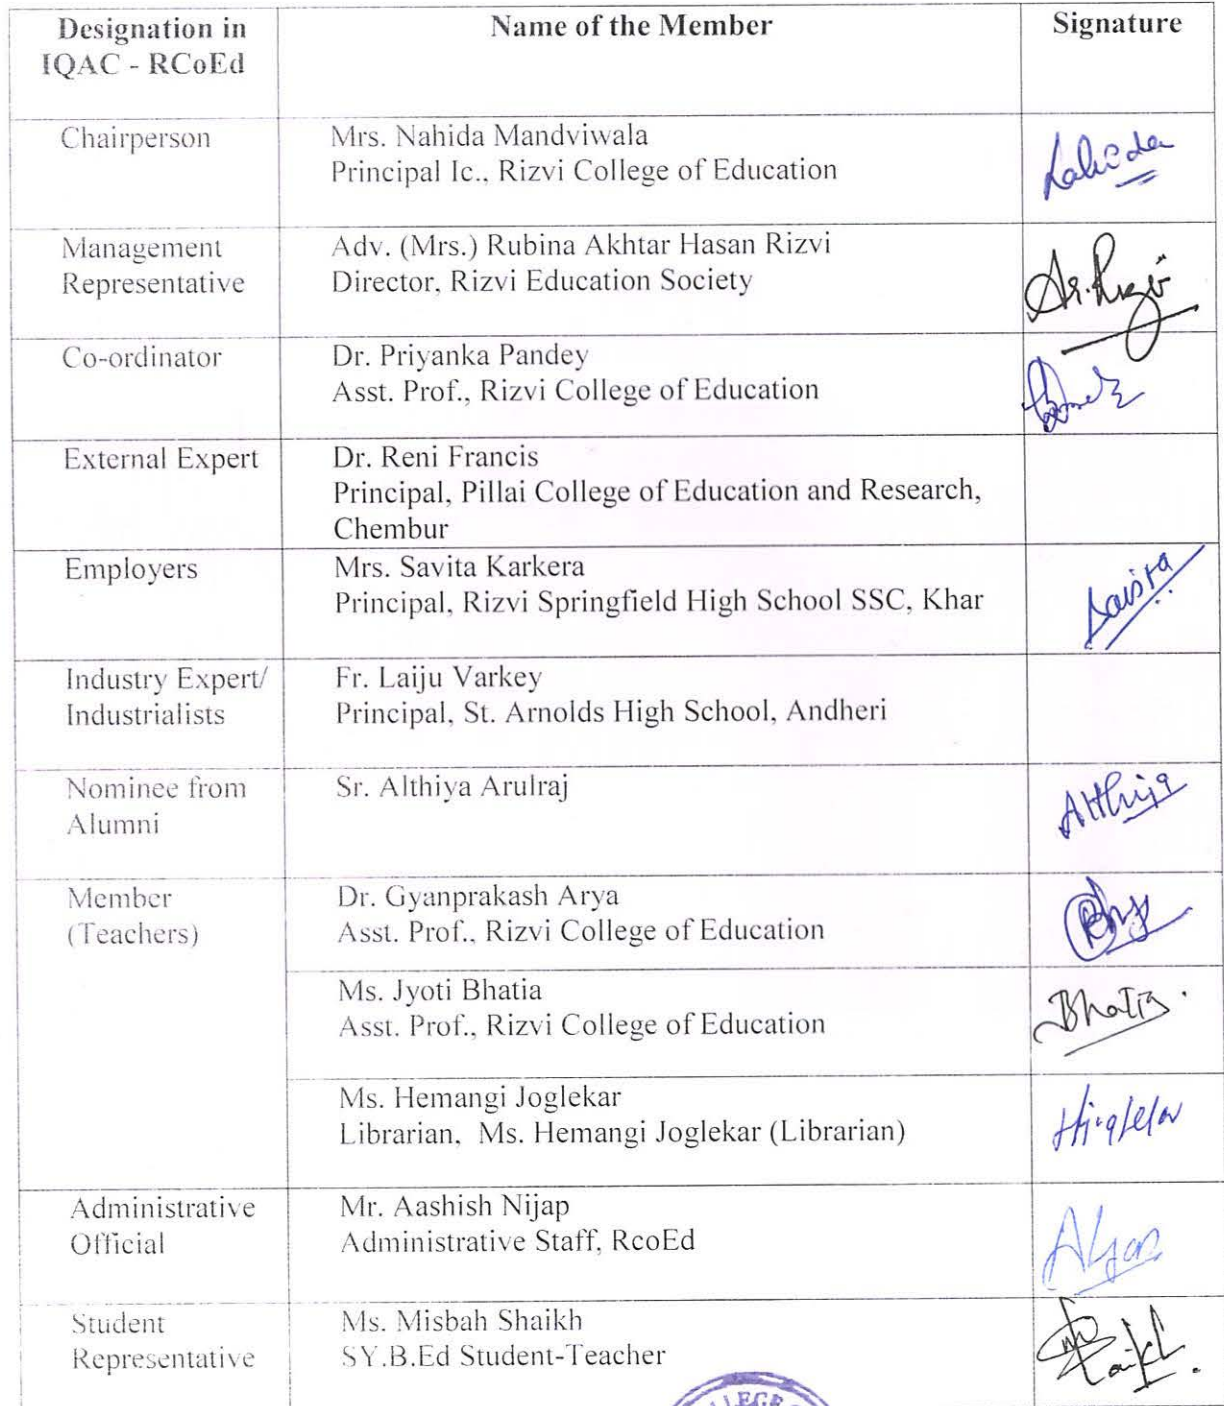 Designation in
IQAC - RCoEd
Name of the Member
Signature
Chairperson
Mrs. Nahida Mandviwala
Principal Ic., Rizvi College of Education
Management
Representative
Adv. (Mrs.) Rubina Akhtar Hasan Rizvi
Director, Rizvi Education Society
Co-ordinator
Dr. Priyanka Pandey
Asst. Prof., Rizvi College of Education
External Expert
Dr. Reni Francis
Principal, Pillai College of Education and Research,
Chembur
Employers
Mrs. Savita Karkera
Principal, Rizvi Springfield High School SSC, Khar
Industry Expert/
Industrialists
Fr. Laiju Varkey
Principal, St. Arnolds High School, Andheri
Nominee from
Alumni
Sr. Althiya Arulraj
Althiya
Member
(Teachers)
Dr. Gyanprakash Arya
Asst. Prof., Rizvi College of Education
Ms. Jyoti Bhatia
Asst. Prof., Rizvi College of Education
Bhatia
Ms. Hemangi Joglekar
Librarian, Ms. Hemangi Joglekar (Librarian)
Administrative
Official
Mr. Aashish Nijap
Administrative Staff, RcoEd
Student
Representative
Ms. Misbah Shaikh
SY.B.Ed Student-Teacher